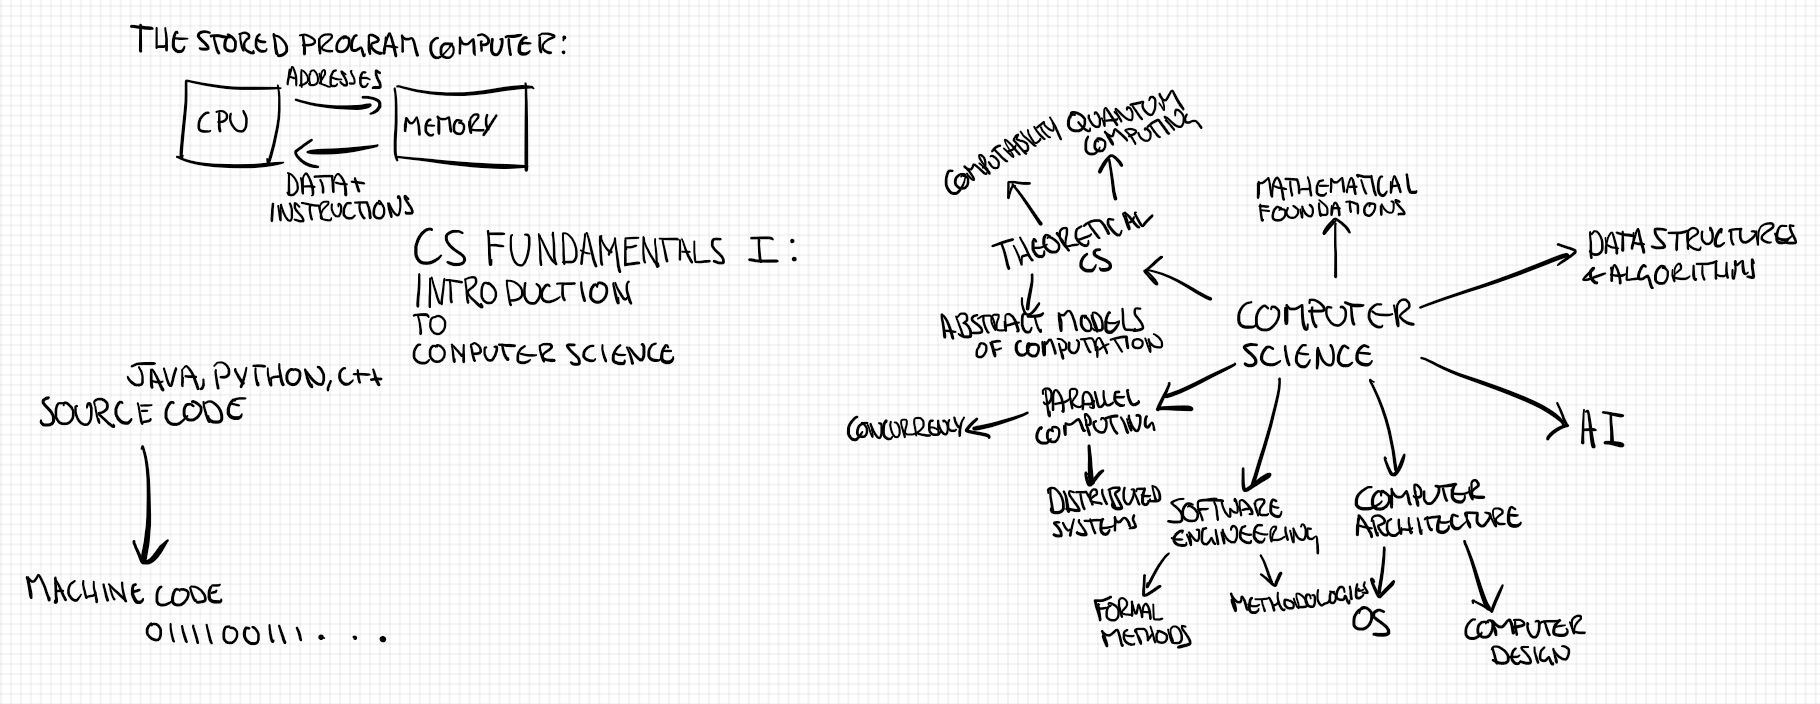 THE STORED PROGRAM COMPUTER:
ADDRESSES
CPU
MEMORY
DATA+
INSTRUCTIONS
CS FUNDAMENTALS I:
INTRODUCTION
TO
COMPUTER SCIENCE
JAVA, PYTHON, C++
SOURCE CODE
MACHINE CODE
01111100111. . .
COMPUTABILITY
QUANTUM
COMPUTING
THEORETICAL
CS
ABSTRACT MODELS
OF COMPUTATION
MATHEMATICAL
FOUNDATIONS
DATA STRUCTURES
& ALGORITHMS
COMPUTER
SCIENCE
AI
PARALLEL
COMPUTING
CONCURRENCY
DISTRIBUTED
SYSTEMS
SOFTWARE
ENGINEERING
FORMAL
METHODS
METHODOLOGIES
COMPUTER
ARCHITECTURE
OS
COMPUTER
DESIGN